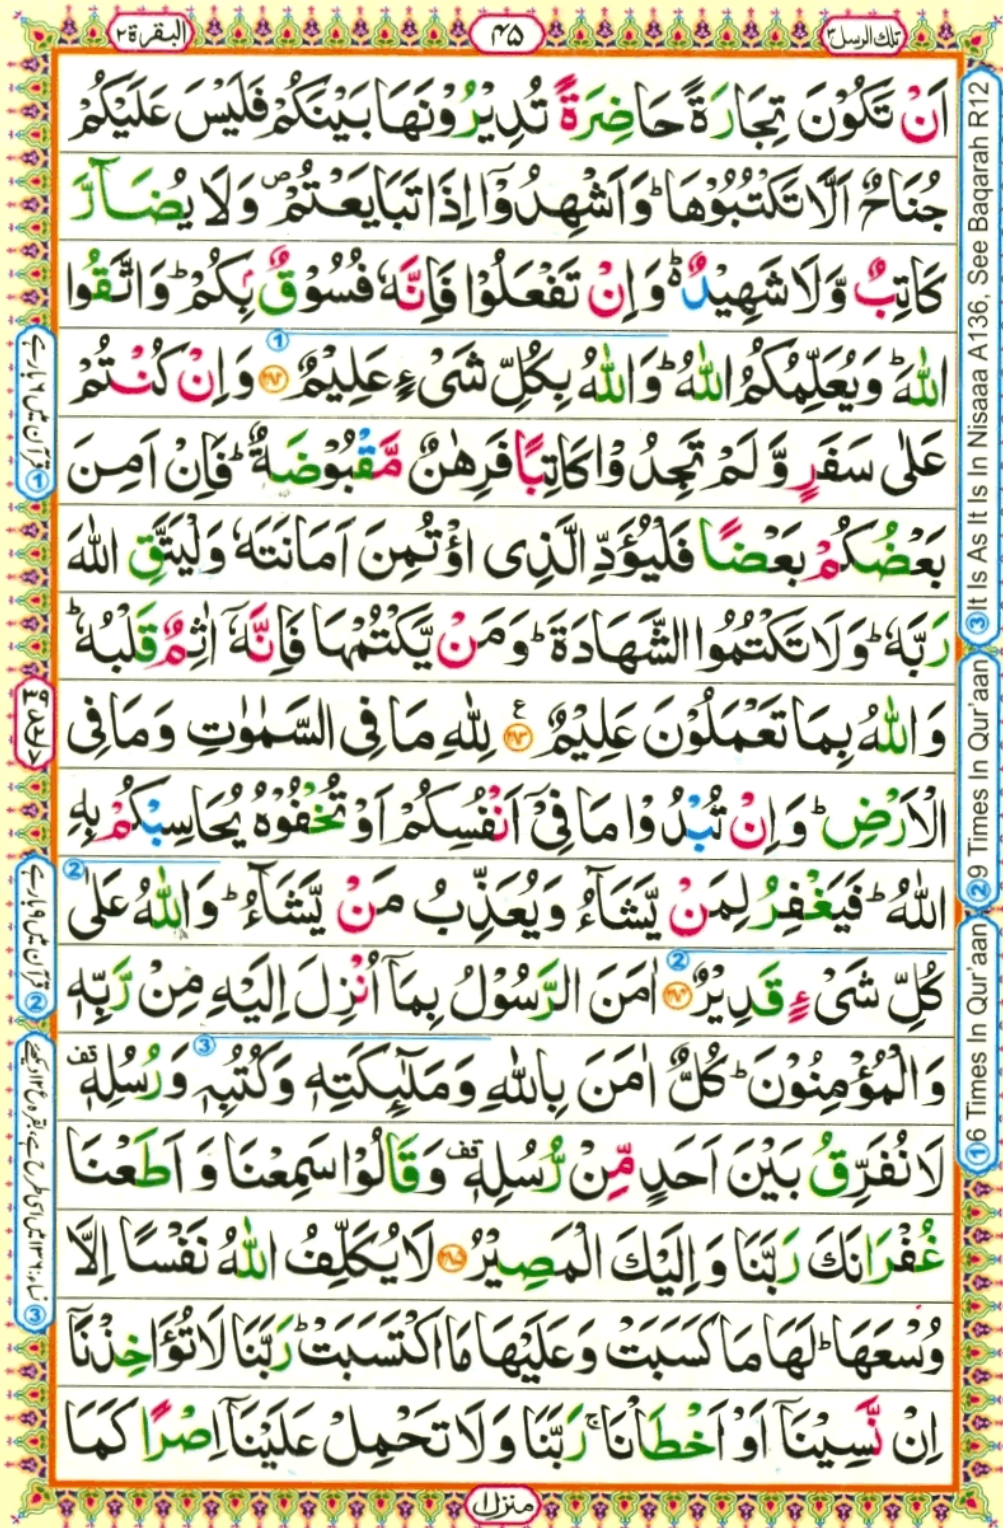 تلك الرسل ٣
۴۵
البقرة ٢
اَنْ تَكُوْنَ تِجَارَةً حَاضِرَةً تُدِيْرُوْنَهَا بَيْنَكُمْ فَلَيْسَ عَلَيْكُمْ
جُنَاحٌ اَلَّا تَكْتُبُوْهَا ؕ وَاَشْهِدُوْۤا اِذَا تَبَايَعْتُمْ ۪ وَلَا يُضَآرَّ
كَاتِبٌ وَّلَا شَهِيْدٌ ؕ۬ وَاِنْ تَفْعَلُوْا فَاِنَّهٗ فُسُوْقٌۢ بِكُمْ ؕ وَاتَّقُوا
اللّٰهَ ؕ وَيُعَلِّمُكُمُ اللّٰهُ ؕ وَاللّٰهُ بِكُلِّ شَیْءٍ عَلِيْمٌ ﴿۲۸۲﴾ وَاِنْ كُنْتُمْ
عَلٰى سَفَرٍ وَّلَمْ تَجِدُوْا كَاتِبًا فَرِهٰنٌ مَّقْبُوْضَةٌ ؕ فَاِنْ اَمِنَ
بَعْضُكُمْ بَعْضًا فَلْيُؤَدِّ الَّذِی اؤْتُمِنَ اَمَانَتَهٗ وَلْيَتَّقِ اللّٰهَ
رَبَّهٗ ؕ وَلَا تَكْتُمُوا الشَّهَادَةَ ؕ وَمَنْ يَّكْتُمْهَا فَاِنَّهٗۤ اٰثِمٌ قَلْبُهٗ ؕ
وَاللّٰهُ بِمَا تَعْمَلُوْنَ عَلِيْمٌ ﴿۲۸۳﴾ ع لِلّٰهِ مَا فِی السَّمٰوٰتِ وَمَا فِی
الْاَرْضِ ؕ وَاِنْ تُبْدُوْا مَا فِیْۤ اَنْفُسِكُمْ اَوْ تُخْفُوْهُ يُحَاسِبْكُمْ بِهِ
اللّٰهُ ؕ فَيَغْفِرُ لِمَنْ يَّشَآءُ وَيُعَذِّبُ مَنْ يَّشَآءُ ؕ وَاللّٰهُ عَلٰى
كُلِّ شَیْءٍ قَدِيْرٌ ﴿۲۸۴﴾ اٰمَنَ الرَّسُوْلُ بِمَاۤ اُنْزِلَ اِلَيْهِ مِنْ رَّبِّهٖ
وَالْمُؤْمِنُوْنَ ؕ كُلٌّ اٰمَنَ بِاللّٰهِ وَمَلٰٓئِكَتِهٖ وَكُتُبِهٖ وَرُسُلِهٖ قف
لَا نُفَرِّقُ بَيْنَ اَحَدٍ مِّنْ رُّسُلِهٖ قف وَقَالُوْا سَمِعْنَا وَاَطَعْنَا
غُفْرَانَكَ رَبَّنَا وَاِلَيْكَ الْمَصِيْرُ ﴿۲۸۵﴾ لَا يُكَلِّفُ اللّٰهُ نَفْسًا اِلَّا
وُسْعَهَا ؕ لَهَا مَا كَسَبَتْ وَعَلَيْهَا مَا اكْتَسَبَتْ ؕ رَبَّنَا لَا تُؤَاخِذْنَاۤ
اِنْ نَّسِيْنَاۤ اَوْ اَخْطَاْنَا ۚ رَبَّنَا وَلَا تَحْمِلْ عَلَيْنَاۤ اِصْرًا كَمَا
منزل ۱
③ It Is As It Is In Nisaaa A136, See Baqarah R12
② 9 Times In Qur'aan
① 6 Times In Qur'aan
① قرآن میں ۶ بار ہے
② قرآن میں ۹ بار ہے